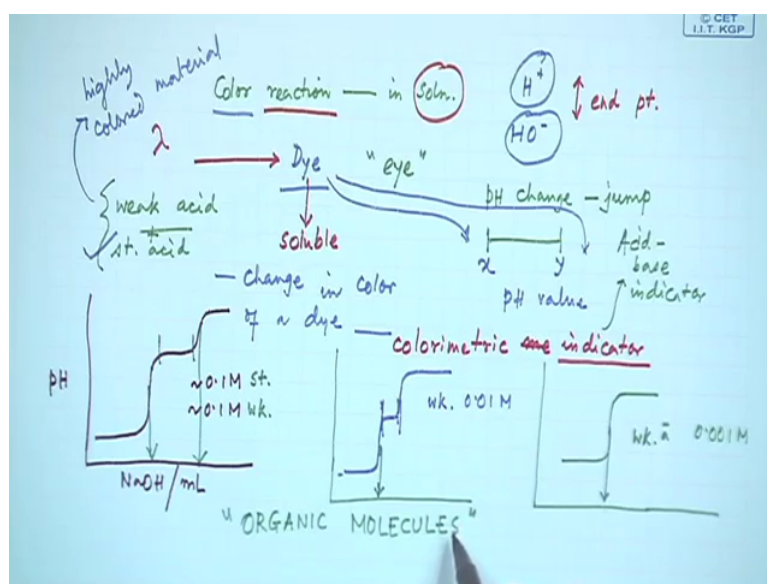 © CET
I.I.T. KGP
highly
colored material
Color reaction — in Soln.
H⁺
HO⁻
end pt.
λ
Dye
"eye"
soluble
{ weak acid
+
st. acid
pH change – jump
x y
pH value
Acid-
base
indicator
– change in color
of a dye —
colorimetric indicator
pH
~0.1M st.
~0.1M wk.
NaOH/mL
wk. 0.01M
wk. ā 0.001M
"ORGANIC MOLECULES"